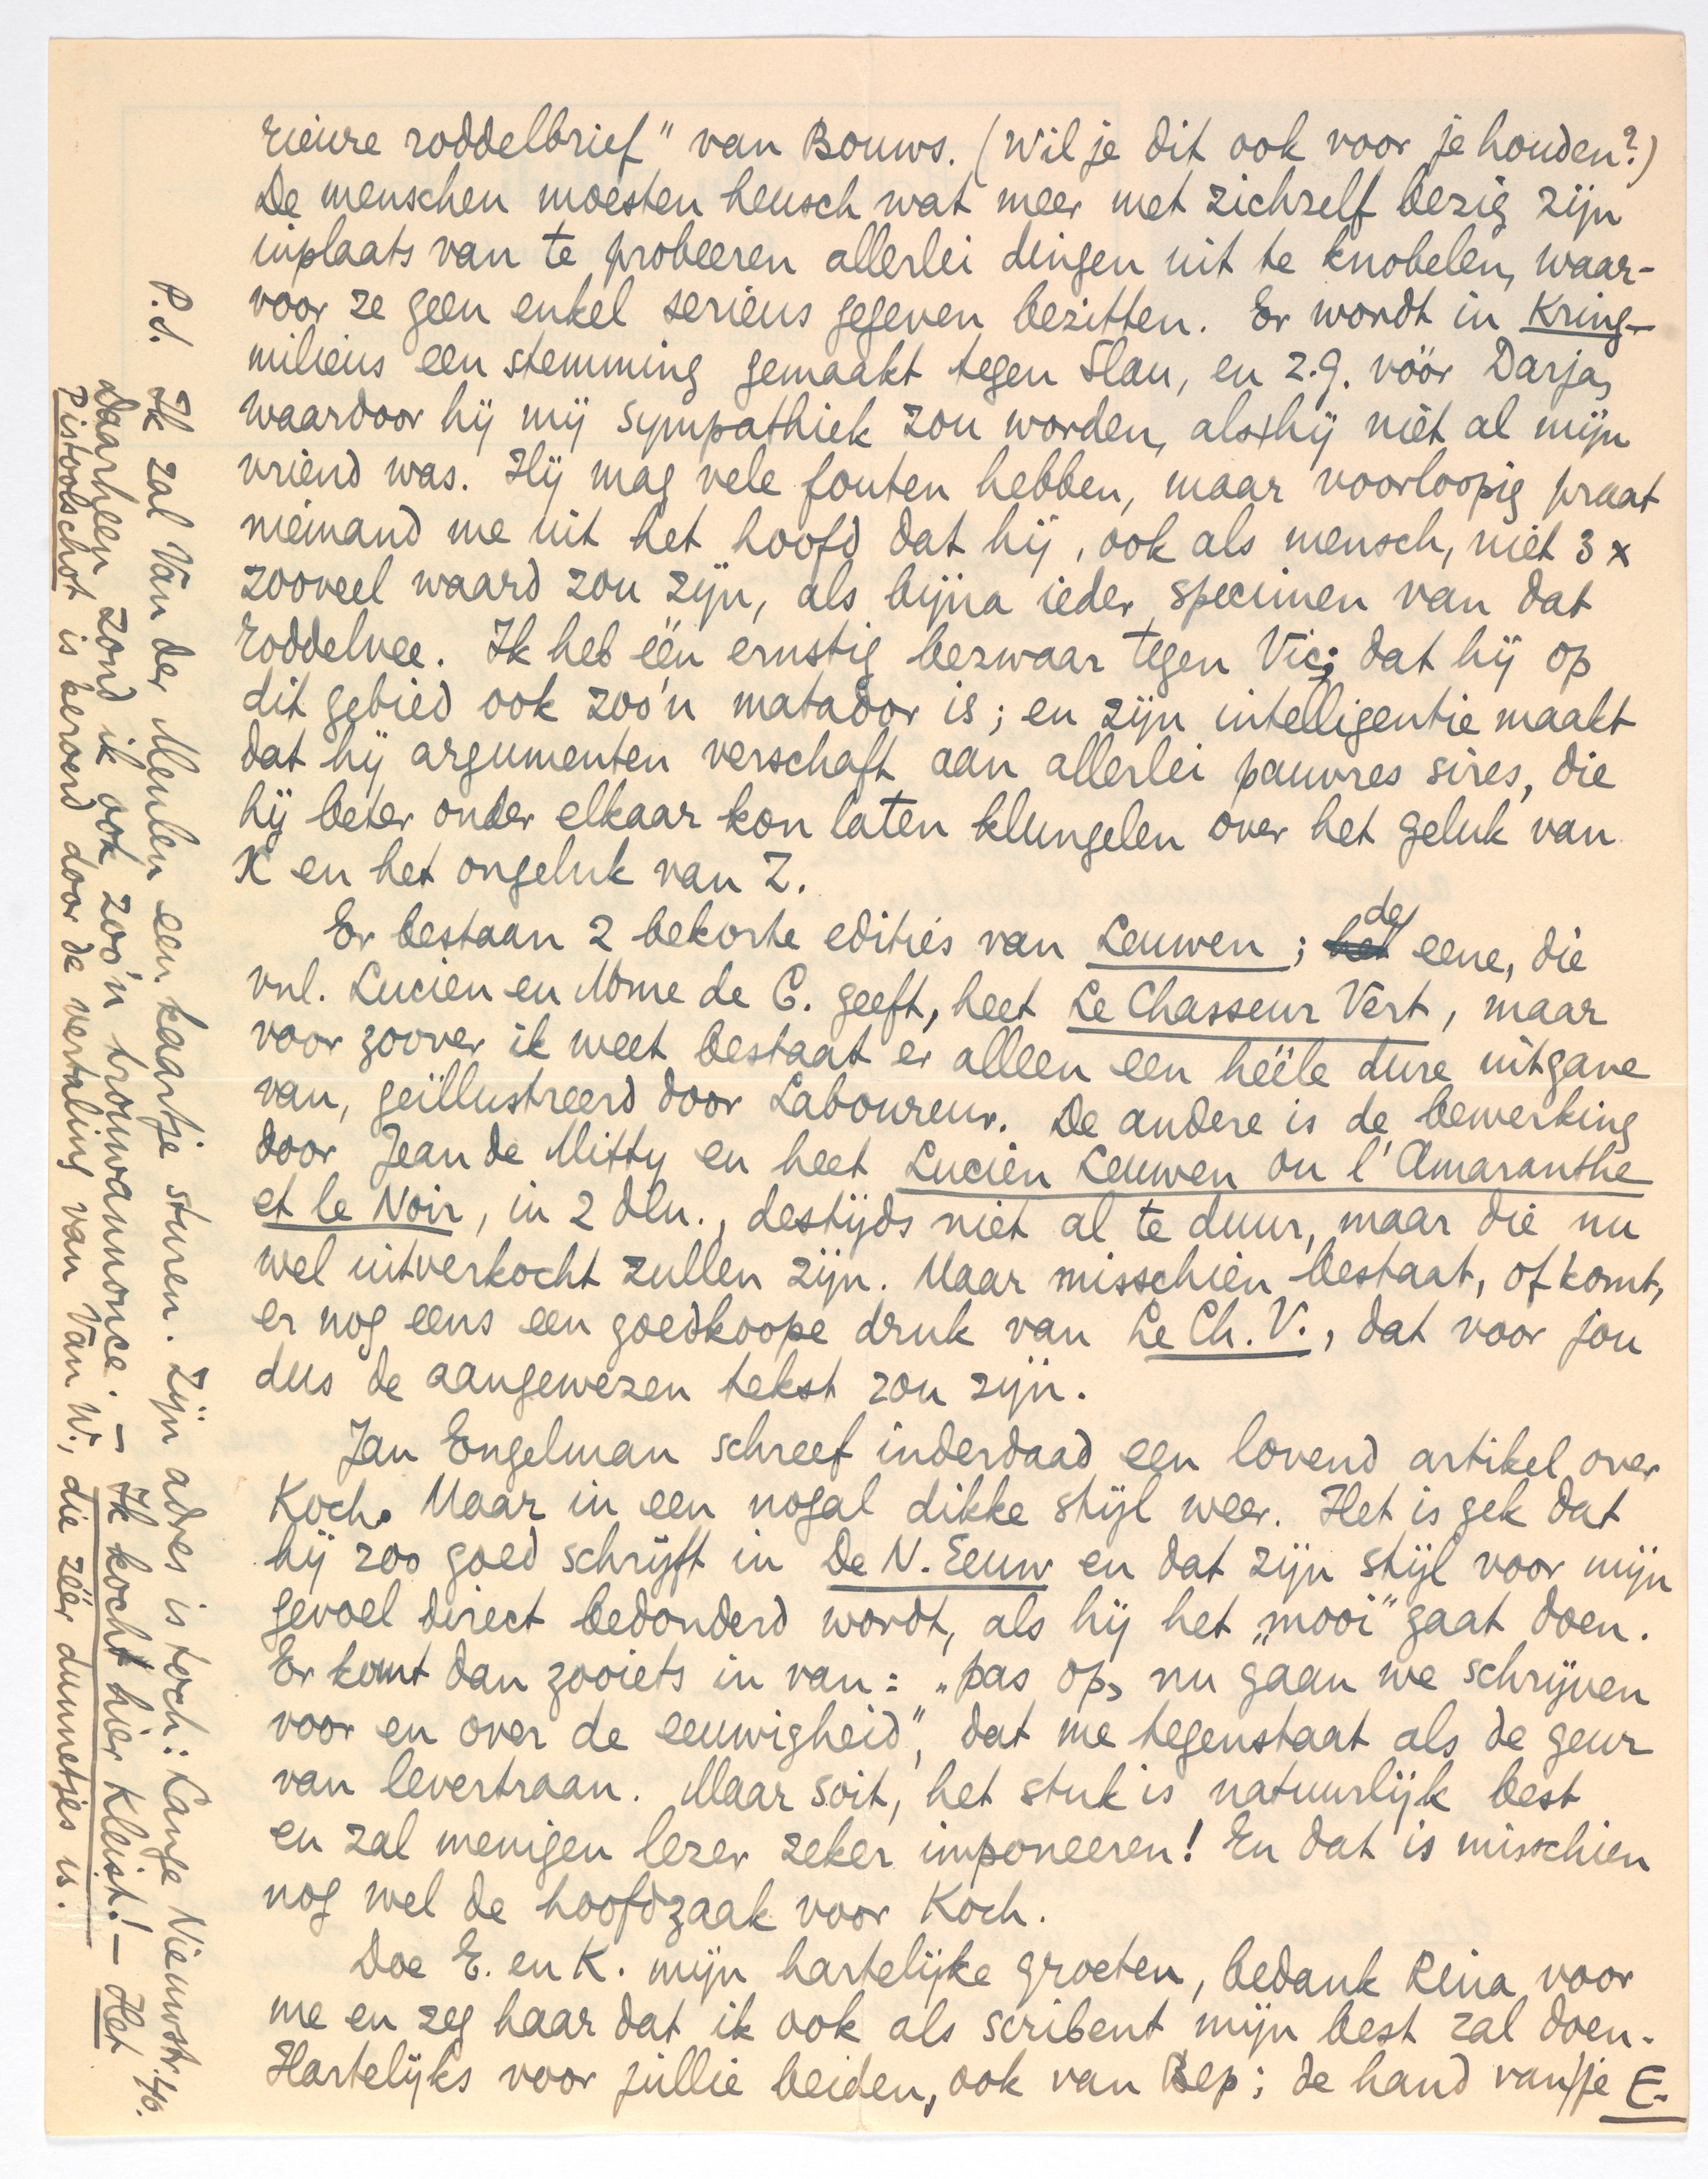 rieure roddelbrief" van Bouws. (Wil je dit ook voor je houden?)
De menschen moesten heusch wat meer met zichzelf bezig zijn
inplaats van te probeeren allerlei dingen uit te knobelen, waar-
voor ze geen enkel serieus gegeven bezitten. Er wordt in Kring-
milieus een stemming gemaakt tegen Slau, en z.g. vóór Darja,
waardoor hij mij sympathiek zou worden, als hij niet al mijn
vriend was. Hij mag vele fouten hebben, maar voorloopig praat
niemand me uit het hoofd dat hij, ook als mensch, niet 3 x
zooveel waard zou zijn, als bijna ieder specimen van dat
roddelvee. Ik heb één ernstig bezwaar tegen Vic; dat hij op
dit gebied ook zoo'n matador is; en zijn intelligentie maakt
dat hij argumenten verschaft aan allerlei pauvres sires, die
hij beter onder elkaar kon laten klungelen over het geluk van
X en het ongeluk van Z.
Er bestaan 2 bekorte edities van Leuwen; het de eene, die
vnl. Lucien en Mme de C. geeft, heet Le Chasseur Vert, maar
voor zoover ik weet bestaat er alleen een héële dure uitgave
van, geïllustreerd door Laboureur. De andere is de bewerking
door Jean de Mitty en heet Lucien Leuwen ou l'Amaranthe
et le Noir, in 2 dln., destijds niet al te duur, maar die nu
wel uitverkocht zullen zijn. Maar misschien bestaat, of komt,
er nog eens een goedkoope druk van Le Ch. V., dat voor jou
dus de aangewezen tekst zou zijn.
Jan Engelman schreef inderdaad een lovend artikel over
Koch. Maar in een nogal dikke stijl weer. Het is gek dat
hij zoo goed schrijft in De N. Eeuw en dat zijn stijl voor mijn
gevoel direct bedonderd wordt, als hij het „mooi" gaat doen.
Er komt dan zooiets in van: „pas op, nu gaan we schrijven
voor en over de eeuwigheid", dat me tegenstaat als de geur
van levertraan. Maar soit, het stuk is natuurlijk best
en zal menigen lezer zeker imponeeren! En dat is misschien
nog wel de hoofdzaak voor Koch.
Doe E. en K. mijn hartelijke groeten, bedank Rina voor
me en zeg haar dat ik ook als scribent mijn best zal doen.
Hartelijks voor jullie beiden, ook van Bep; de hand van je E.
P.S. Ik zal Van der Meulen een kaartje sturen. Zijn adres is toch: Lange Nieuwstr. 46.
Daarheen zond ik ook zoo'n trouwannonce. – Ik kocht hier Kleist! – Het
Pistoolschot is beroerd door de vertaling van Van W., die zéér dunnetjes is.